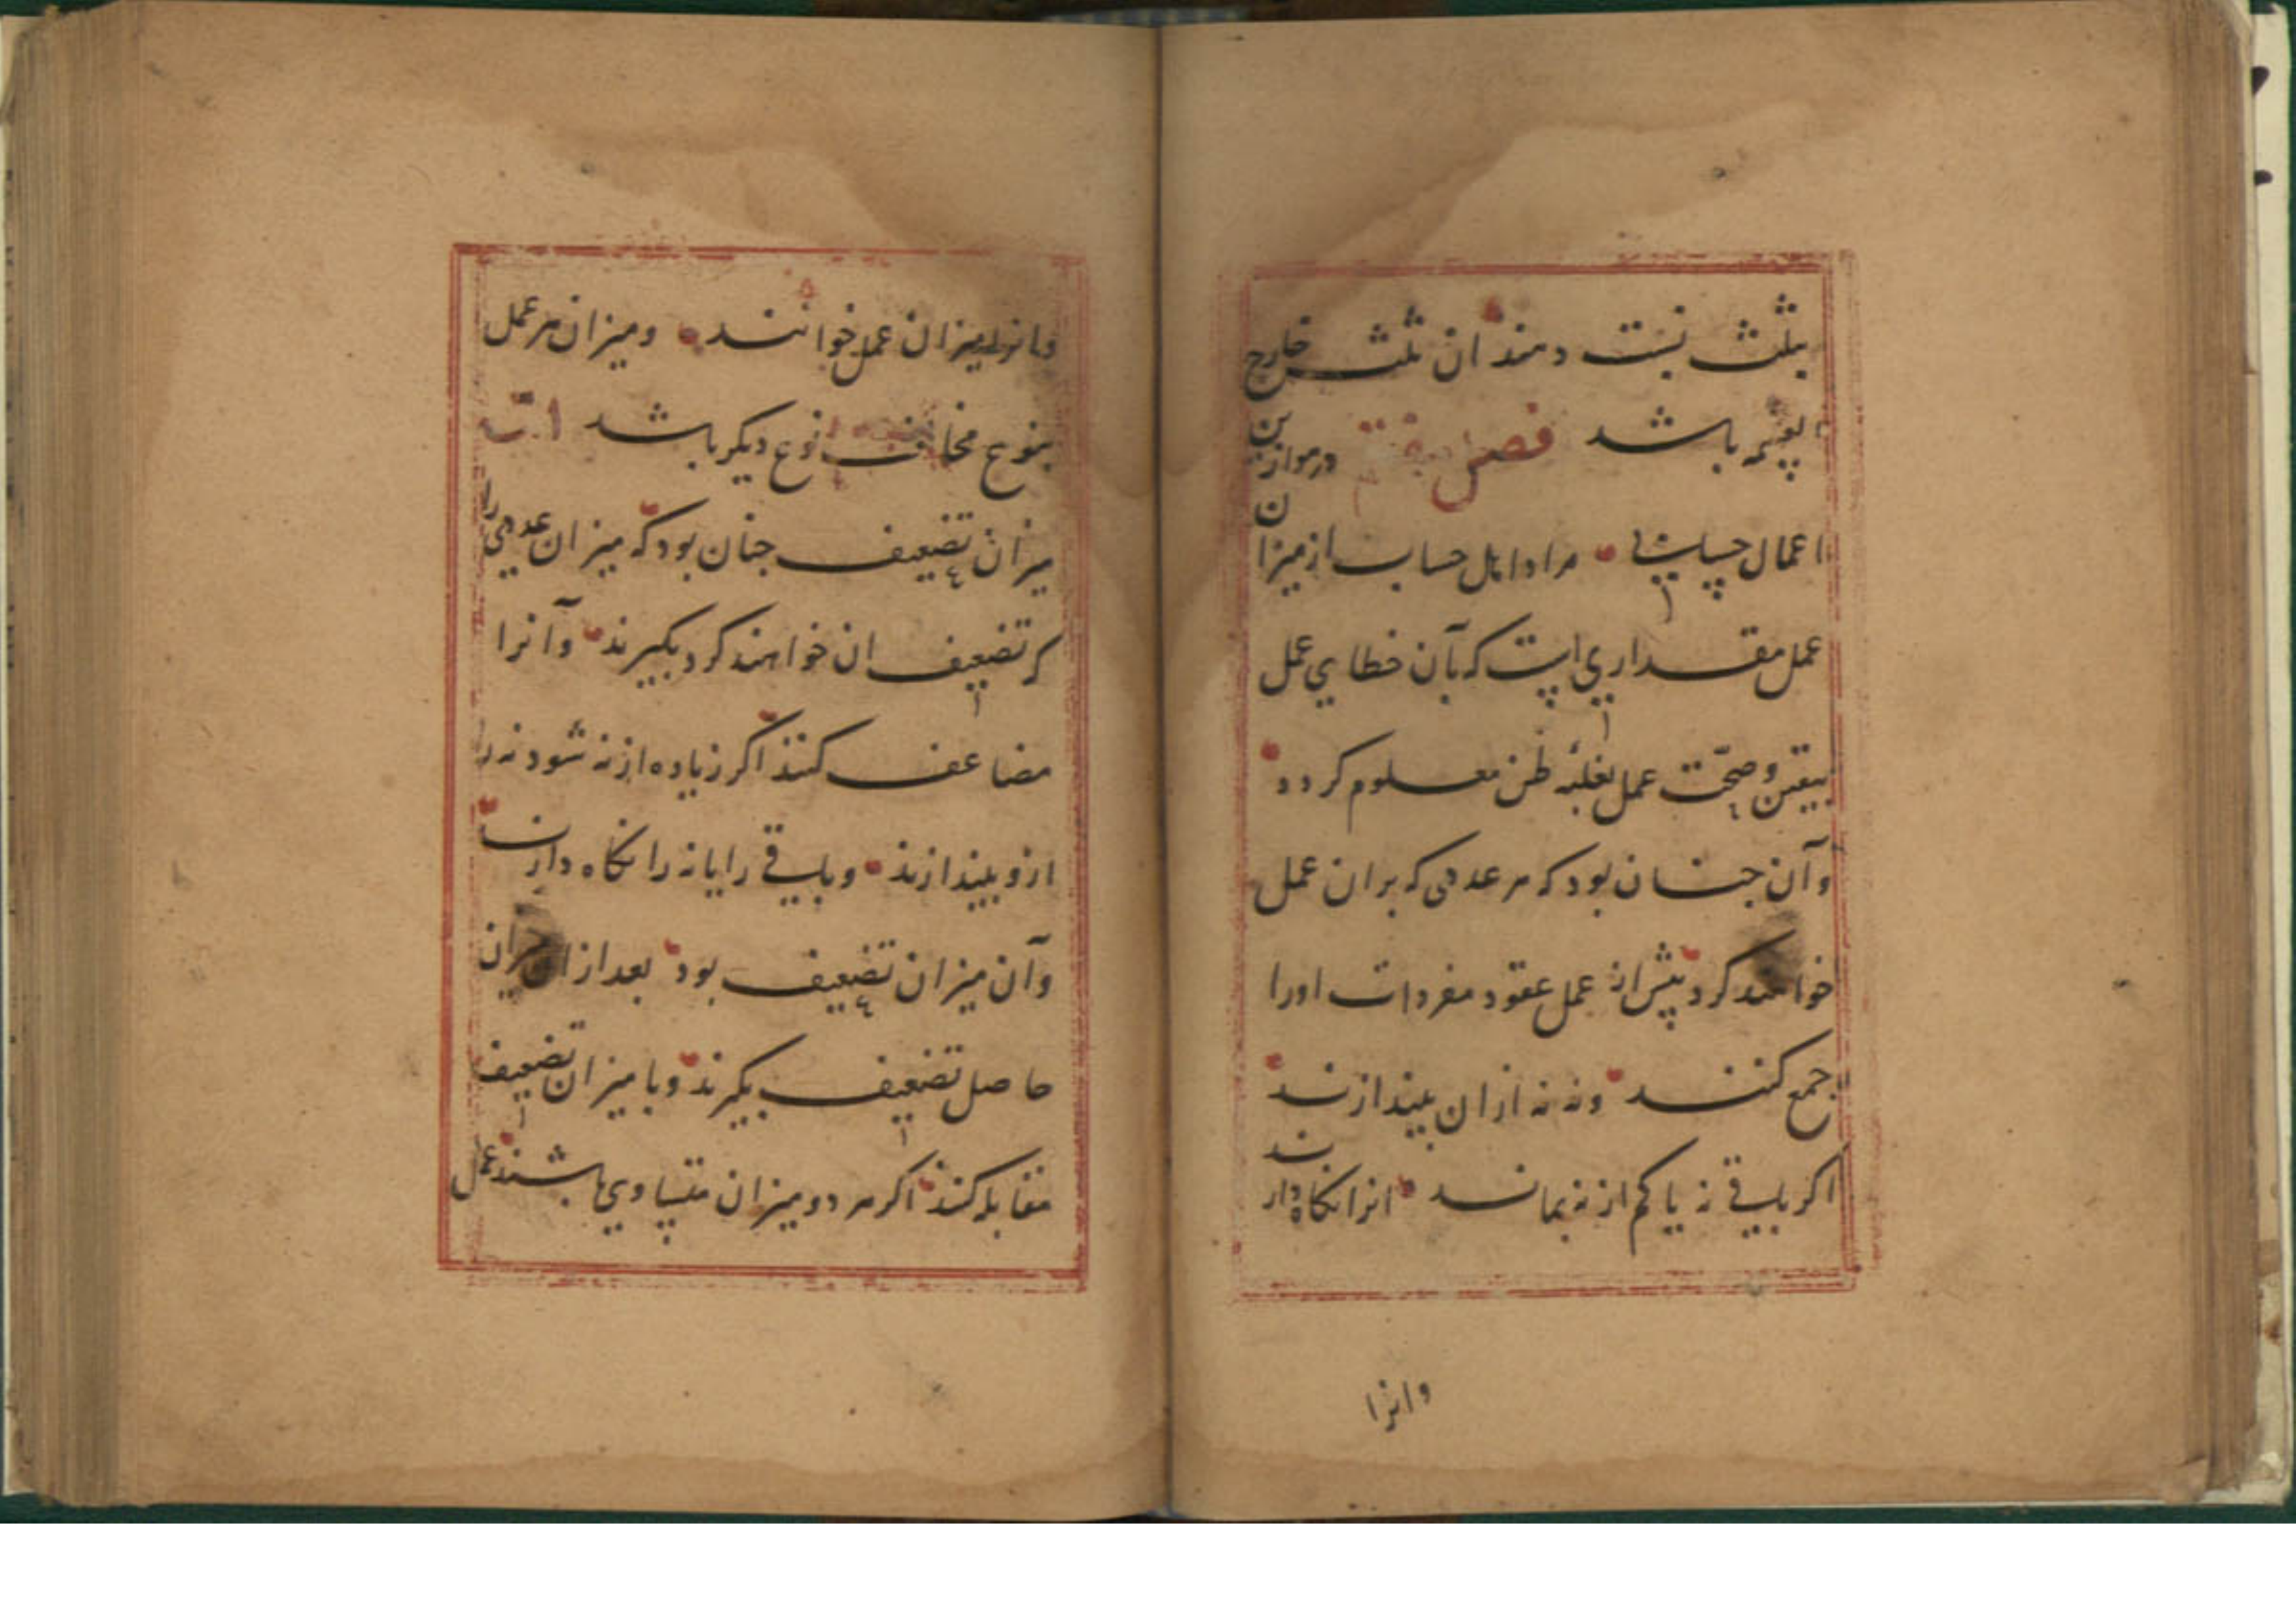 بثلث نسبت دهند ان ثلث خارج
لقسمه باشد فصل هفتم در موازین
اعمال حسابست مراد اهل حساب از میزان
عمل مقداری است که بآن خطای عمل
بیقین و صحّت عمل بغلبه ظن معلوم کردد
و آن جنان بود که هر عددی که بران عمل
خواهند کرد پیش از عمل عقود مفردات اورا
جمع کنند و نه نه ازان بیندازند
اکر باقی نه یا کم از نه بماند انرا نکاه دارند
وانرا
وانرا میزان عمل خوانند و میزان هر عمل
بنوع مخالف نوع دیکر باشد امّا
میزان تضعیف جنان بود که میزان عددی را
که تضعیف ان خواهند کرد بکیرند و آنرا
مضاعف کنند اکر زیاده از نه شود نه را
ازو بیندازند و باقی را یا نه را نکاه دارند
و آن میزان تضعیف بود بعد ازان میزان
حاصل تضعیف بکیرند و با میزان تضعیف
مقابله کنند اکر هر دو میزان متساوی باشند عمل